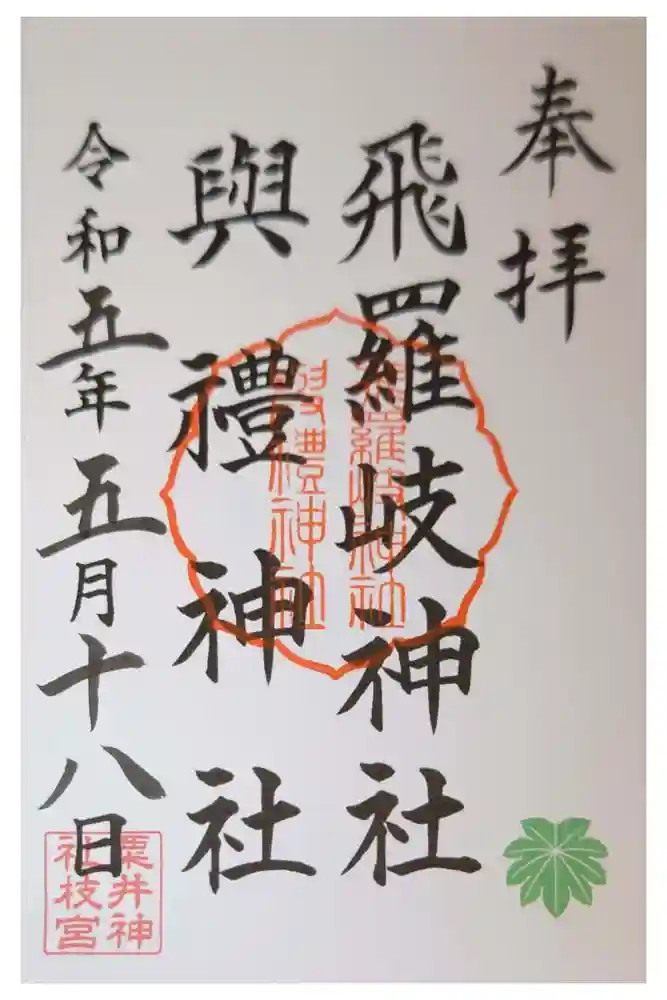 奉拝
飛羅岐神社
與禮神社
令和五年五月十八日
與禮神社
粟井神
社枝宮